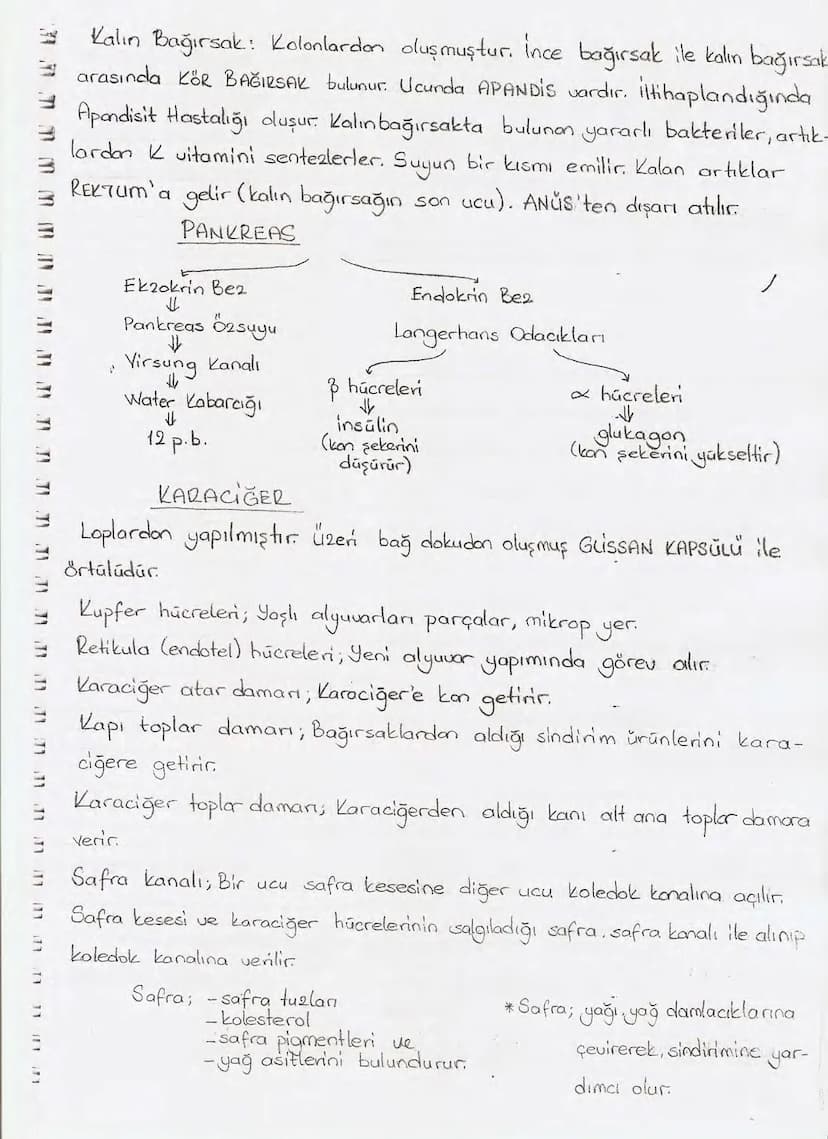 Kalın Bağırsak: Kolonlardan oluşmuştur. İnce bağırsak ile kalın bağırsak
arasında KÖR BAĞIRSAK bulunur. Ucunda APANDİS vardır. İltihaplandığında
Apandisit Hastalığı oluşur. Kalınbağırsakta bulunan yararlı bakteriler, artık-
lardan K vitamini sentezlerler. Suyun bir kısmı emilir. Kalan artıklar
REKTUM'a gelir (kalın bağırsağın son ucu). ANÜS'ten dışarı atılır.
PANKREAS
Ekzokrin Bez
⇓
Pankreas Özsuyu
⇓
Virsung Kanalı
⇓
Water Kabarcığı
⇓
12 p.b.
Endokrin Bez
Langerhans Odacıkları
β hücreleri
⇓
insülin
(kan şekerini
düşürür)
α hücreleri
⇓
glukagon
(kan şekerini yükseltir)
KARACİĞER
Loplardan yapılmıştır. Üzeri bağ dokudan oluşmuş GLİSSAN KAPSÜLÜ ile
örtülüdür.
Kupfer hücreleri; Yaşlı alyuvarları parçalar, mikrop yer.
Retikula (endotel) hücreleri; Yeni alyuvar yapımında görev alır.
Karaciğer atar damarı; Karaciğer'e kan getirir.
Kapı toplar damarı; Bağırsaklardan aldığı sindirim ürünlerini kara-
ciğere getirir.
Karaciğer toplar damarı; Karaciğerden aldığı kanı alt ana toplar damara
verir.
Safra kanalı; Bir ucu safra kesesine diğer ucu koledok kanalına açılır.
Safra kesesi ve karaciğer hücrelerinin salgıladığı safra, safra kanalı ile alınıp
koledok kanalına verilir.
Safra; - safra tuzları
- kolesterol
- safra pigmentleri ve
- yağ asitlerini bulundurur.
* Safra; yağı, yağ damlacıklarına
çevirerek, sindirimine yar-
dımcı olur.